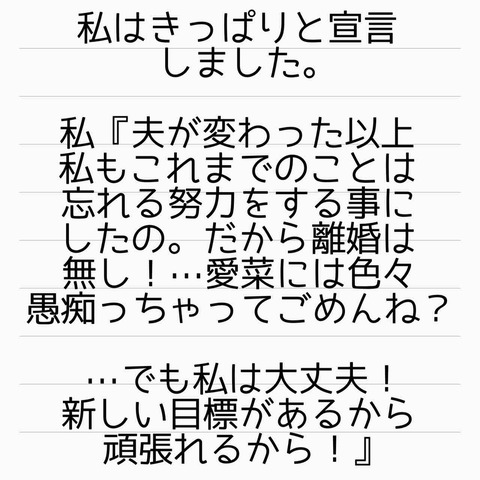 私はきっぱりと宣言
しました。
私『夫が変わった以上
私もこれまでのことは
忘れる努力をする事に
したの。だから離婚は
無し！…愛菜には色々
愚痴っちゃってごめんね？
…でも私は大丈夫！
新しい目標があるから
頑張れるから！』